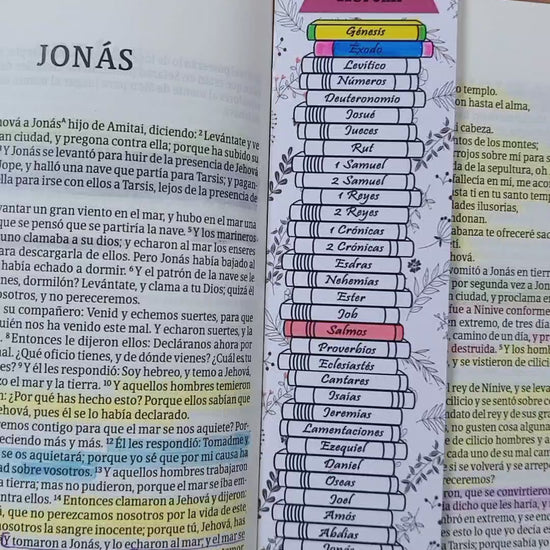 JONÁS
hová a Jonás hijo de Amitai, diciendo: ² Levántate y ve
an ciudad, y pregona contra ella; porque ha subido su
³ Y Jonás se levantó para huir de la presencia de Jehová
Jope, y halló una nave que partía para Tarsis; y pagan-
lla para irse con ellos a Tarsis, lejos de la presencia de
vantar un gran viento en el mar, y hubo en el mar una
que se pensó que se partiría la nave. ⁵ Y los marineros
uno clamaba a su dios; y echaron al mar los enseres
ara descargarla de ellos. Pero Jonás había bajado al
había echado a dormir. ⁶ Y el patrón de la nave se le
enes, dormilón? Levántate, y clama a tu Dios; quizá él
osotros, y no pereceremos.
su compañero: Venid y echemos suertes, para que
uién nos ha venido este mal. Y echaron suertes, y la
⁸ Entonces le dijeron ellos: Decláranos ahora por
al. ¿Qué oficio tienes, y de dónde vienes? ¿Cuál es tu
es? ⁹ Y él les respondió: Soy hebreo, y temo a Jehová,
zo el mar y la tierra. ¹⁰ Y aquellos hombres temieron
n: ¿Por qué has hecho esto? Porque ellos sabían que
ehová, pues él se lo había declarado.
aremos contigo para que el mar se nos aquiete? Por-
reciendo más y más. ¹² Él les respondió: Tomadme y
se os aquietará; porque yo sé que por mi causa ha
ad sobre vosotros. ¹³ Y aquellos hombres trabajaron
a tierra; mas no pudieron, porque el mar se iba em-
ontra ellos. ¹⁴ Entonces clamaron a Jehová y dijeron:
á, que no perezcamos nosotros por la vida de este
nosotros la sangre inocente; porque tú, Jehová, has
Y tomaron a Jonás, y lo echaron al mar; y el mar se
Génesis
Éxodo
Levítico
Números
Deuteronomio
Josué
Jueces
Rut
1 Samuel
2 Samuel
1 Reyes
2 Reyes
1 Crónicas
2 Crónicas
Esdras
Nehemías
Ester
Job
Salmos
Proverbios
Eclesiastés
Cantares
Isaías
Jeremías
Lamentaciones
Ezequiel
Daniel
Oseas
Joel
Amós
Abdías
o templo.
on hasta el alma,
i cabeza.
entos de los montes;
rrojos sobre mí para s
da de sepultura, oh J
fallecía en mí, me aco
sta ti en tu santo temp
ades ilusorias,
ndonan.
abanza te ofreceré sac
hová.
vomitó a Jonás en tier
por segunda vez a Jon
ciudad, y proclama e
fue a Nínive conforme
n extremo, de tres día
camino de un día, y pr
destruida. ⁵ Y los hom
y se vistieron de cilici
rey de Nínive, y se leva
cilicio y se sentó sobre c
dato del rey y de sus gra
no gusten cosa alguna
e cilicio hombres y a
ada uno de su mal cami
i se volverá y se arrepe
eceremos?
s, que se convirtieron
dicho que les haría, y n
bró en extremo, y se eno
esto lo que yo decía es